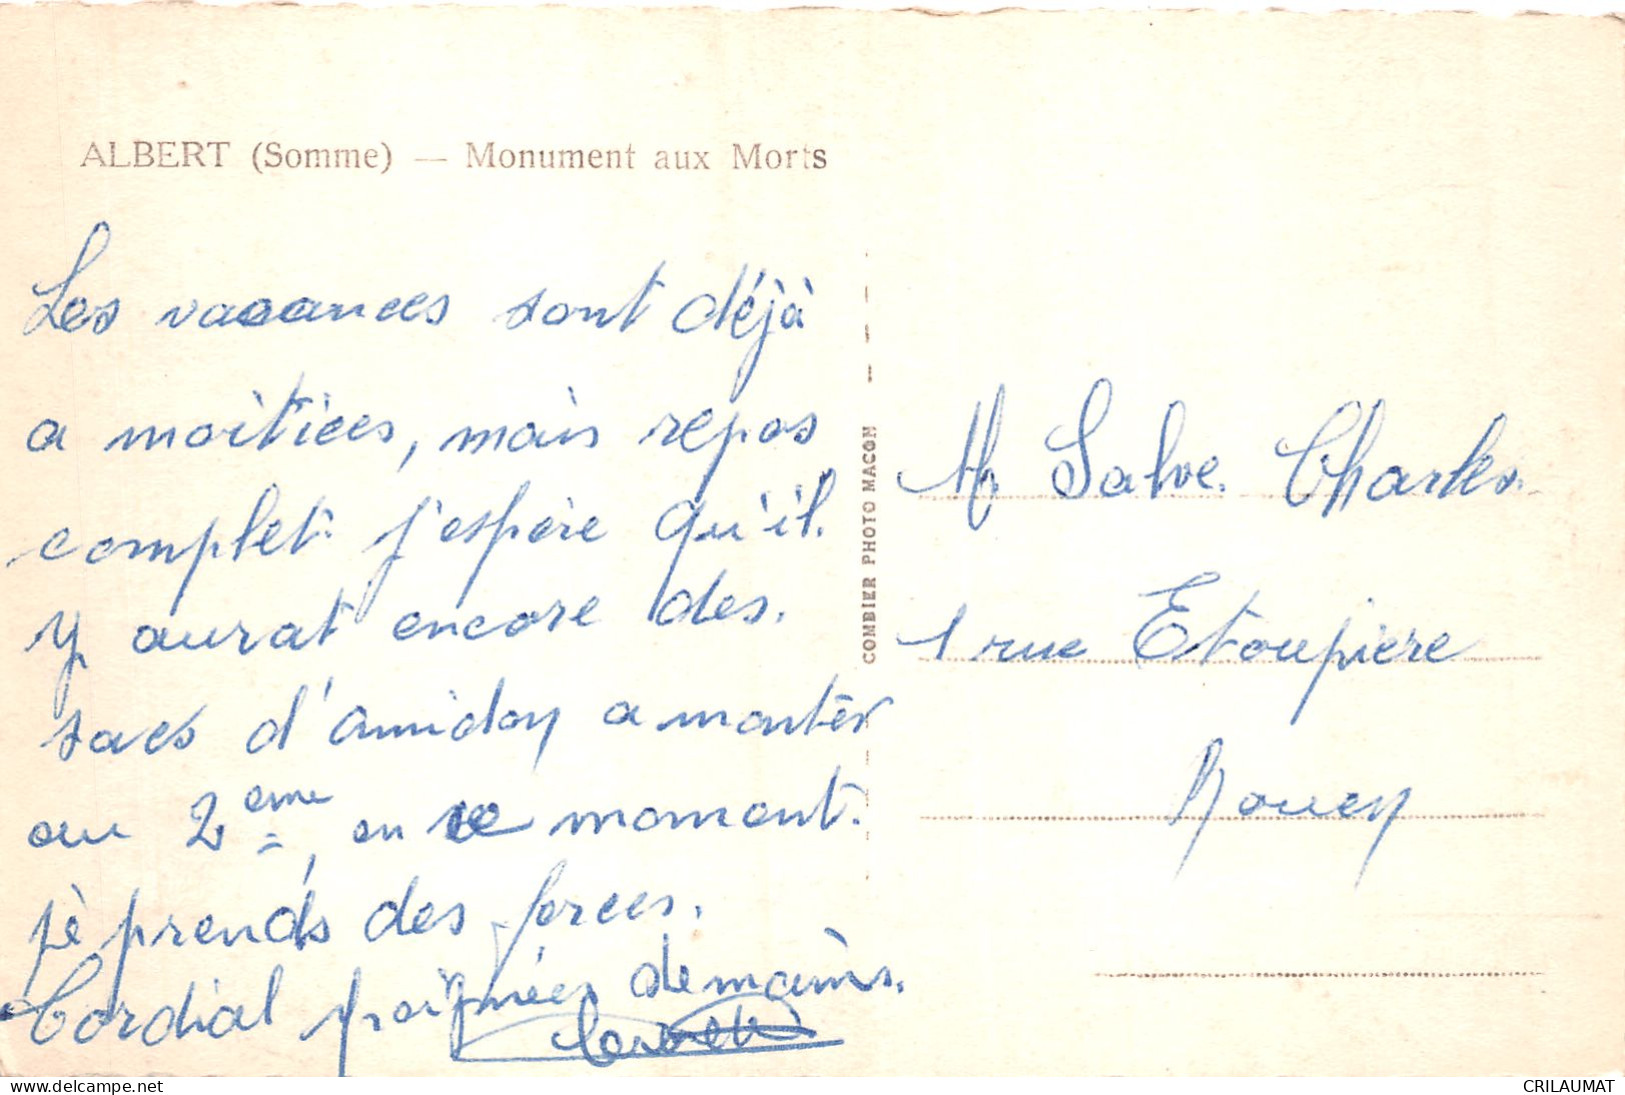 ALBERT (Somme) — Monument aux Morts
Les vacances sont déjà
a moitiées, mais repos
complet. j'espère qu'il.
y aurat encore des.
sacs d'amidon a montèr
au 2ème, en ce moment.
jè prends des forces.
Cordial poignées de mains.
COMBIER PHOTO MACON
M Salve. Charles.
1 rue Etoupière
Rouen
www.delcampe.net
CRILAUMAT